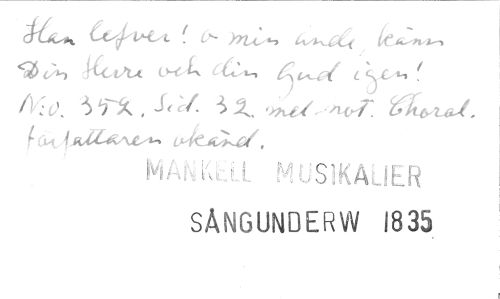 Han lefver! o min ande, känn
Din Herre och din Gud igen!
N:o. 352. Sid. 32 med not. Choral.
författaren okänd.
MANKELL MUSIKALIER
SÅNGUNDERW 1835